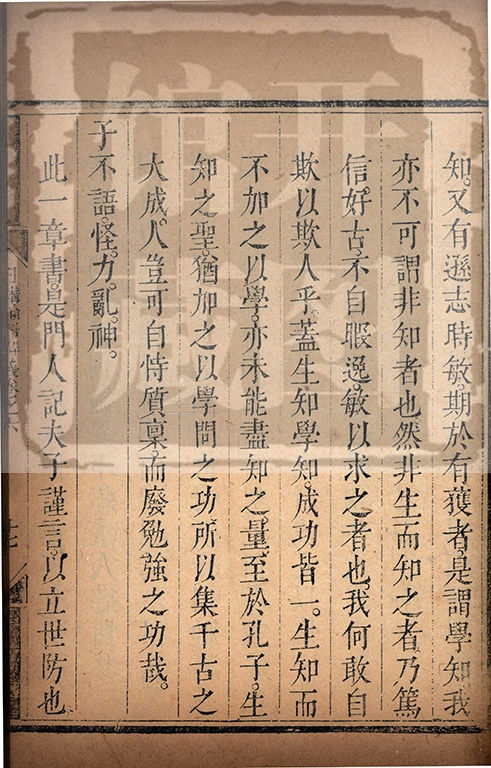 知。又有遜志時敏。期於有獲者。是謂學知。我
亦不可謂非知者也。然非生而知之者。乃篤
信好古。不自暇逸。敏以求之者也。我何敢自
欺以欺人乎。蓋生知學知。成功皆一。生知而
不加之以學。亦未能盡知之量。至於孔子。生
知之聖。猶加之以學問之功。所以集千古之
大成。人豈可自恃質稟。而廢勉強之功哉。
子不語。怪。力。亂。神。
此一章書。是門人記夫子謹言。以立世防也